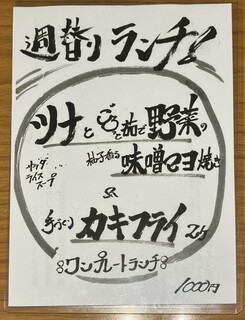 週替り ランチ!
ツナとごろごろ茄で野菜の
柚子香る 味噌マヨ焼き
サラダ
ライス
スープ
&
手づくり カキフライ 2ケ
ワンプレートランチ
1000円